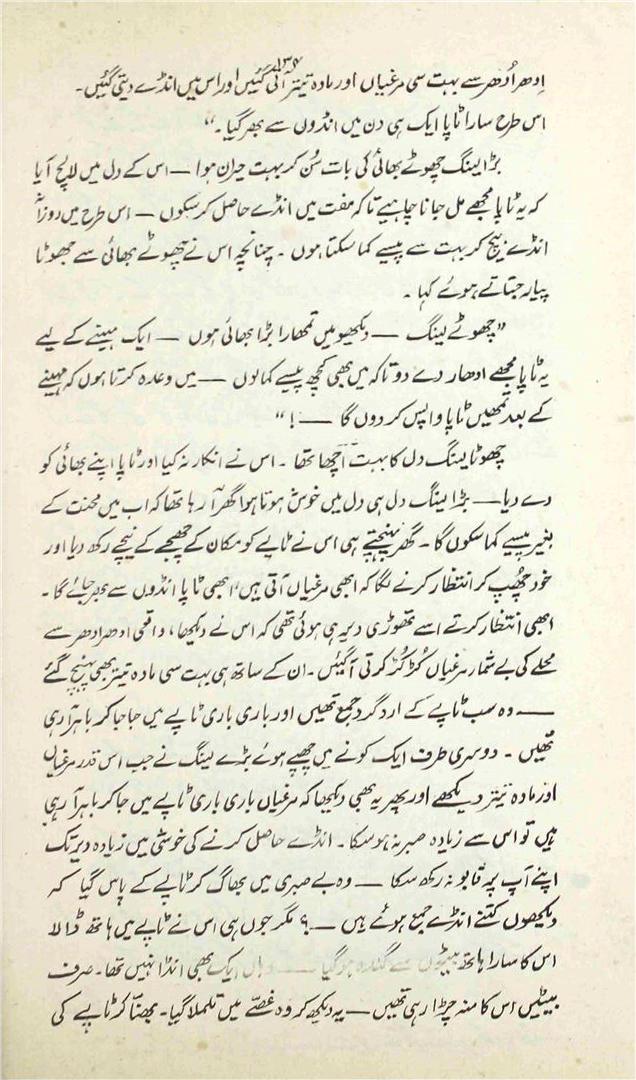 ۱۳۷
اِدھر اُدھر سے بہت سی مرغیاں اور مادہ تیتر آتی گئیں اور اس میں انڈے دیتی گئیں۔
اس طرح سارا ٹاپا ایک ہی دن میں انڈوں سے بھر گیا۔"
بڑا لینگ چھوٹے بھائی کی بات سُن کر بہت حیران ہوا — اس کے دل میں لالچ آیا
کہ یہ ٹاپا مجھے مل جانا چاہیے تاکہ مفت میں انڈے حاصل کر سکوں — اس طرح میں روزانہ
انڈے بیچ کر بہت سے پیسے کما سکتا ہوں۔ چنانچہ اس نے چھوٹے بھائی سے جھوٹا
پیار جتاتے ہوئے کہا۔
"چھوٹے لینگ — دیکھو میں تمھارا بڑا بھائی ہوں — ایک مہینے کے لیے
یہ ٹاپا مجھے ادھار دے دو تاکہ میں بھی کچھ پیسے کما لوں — میں وعدہ کرتا ہوں کہ مہینے
کے بعد تمھیں ٹاپا واپس کر دوں گا —!"
چھوٹا لینگ دل کا بہت اچھا تھا۔ اس نے انکار نہ کیا اور ٹاپا اپنے بھائی کو
دے دیا — بڑا لینگ دل ہی دل میں خوش ہوتا ہوا گھر آ رہا تھا کہ اب میں محنت کے
بغیر پیسے کما سکوں گا۔ گھر پہنچتے ہی اس نے ٹاپے کو مکان کے چھجے کے نیچے رکھ دیا اور
خود چھپ کر انتظار کرنے لگا کہ ابھی مرغیاں آتی ہیں، ابھی ٹاپا انڈوں سے بھر جائے گا۔
ابھی انتظار کرتے اسے تھوڑی دیر ہی ہوئی تھی کہ اس نے دیکھا، واقعی ادھر ادھر سے
محلے کی بے شمار مرغیاں کڑ کڑ کرتی آ گئیں۔ ان کے ساتھ ہی بہت سی مادہ تیتر بھی پہنچ گئے
— وہ سب ٹاپے کے ارد گرد جمع تھیں اور باری باری ٹاپے میں جا جا کر باہر آ رہی
تھیں۔ دوسری طرف ایک کونے میں چھپے ہوئے بڑے لینگ نے جب اس قدر مرغیاں
اور مادہ تیتر دیکھے اور پھر یہ بھی دیکھا کہ مرغیاں باری باری ٹاپے میں جا کر باہر آ رہی
ہیں تو اس سے زیادہ صبر نہ ہو سکا۔ انڈے حاصل کرنے کی خوشی میں زیادہ دیر تک
اپنے آپ پر قابو نہ رکھ سکا — وہ بے صبری میں بھاگ کر ٹاپے کے پاس گیا کہ
دیکھوں کتنے انڈے جمع ہوئے ہیں —؟ مگر جوں ہی اس نے ٹاپے میں ہاتھ ڈالا
اس کا سارا ہاتھ بیٹوں سے گندہ ہو گیا — وہاں ایک بھی انڈا نہیں تھا۔ صرف
بیٹیں اس کا منہ چڑا رہی تھیں — یہ دیکھ کر وہ غصے میں تلملا گیا۔ بھنّا کر ٹاپے کی